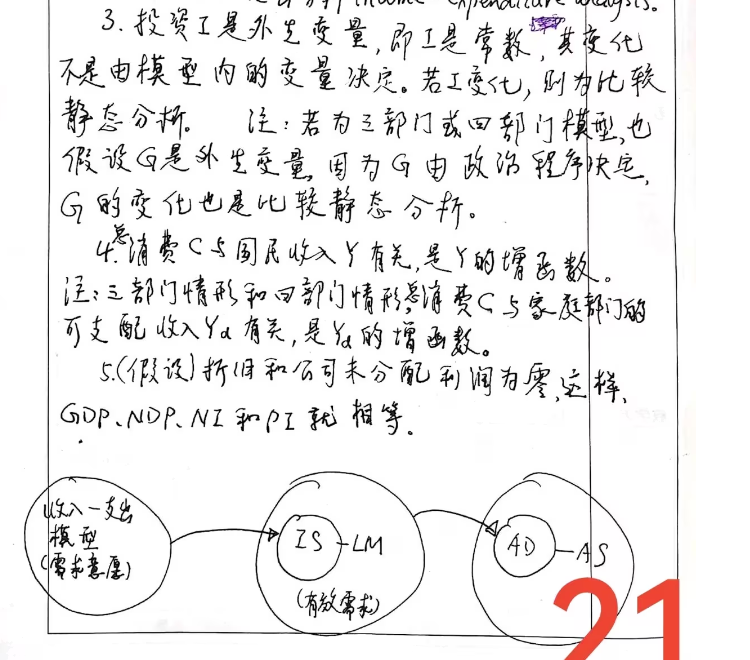 income expenditure analysis.
3. 投资I是外生变量,即I是常数,其变化
不是由模型内的变量决定。若I变化,则为比较
静态分析。 注:若为三部门或四部门模型,也
假设G是外生变量,因为G由政治程序决定,
G的变化也是比较静态分析。
4.总消费C与国民收入Y有关,是Y的增函数。
注:三部门情形和四部门情形,总消费C与家庭部门的
可支配收入Yd有关,是Yd的增函数。
5.(假设)折旧和公司未分配利润为零,这样,
GDP、NDP、NI和PI就相等。
收入-支出
模型
(需求意愿)
IS-LM
(有效需求)
AD-AS
21